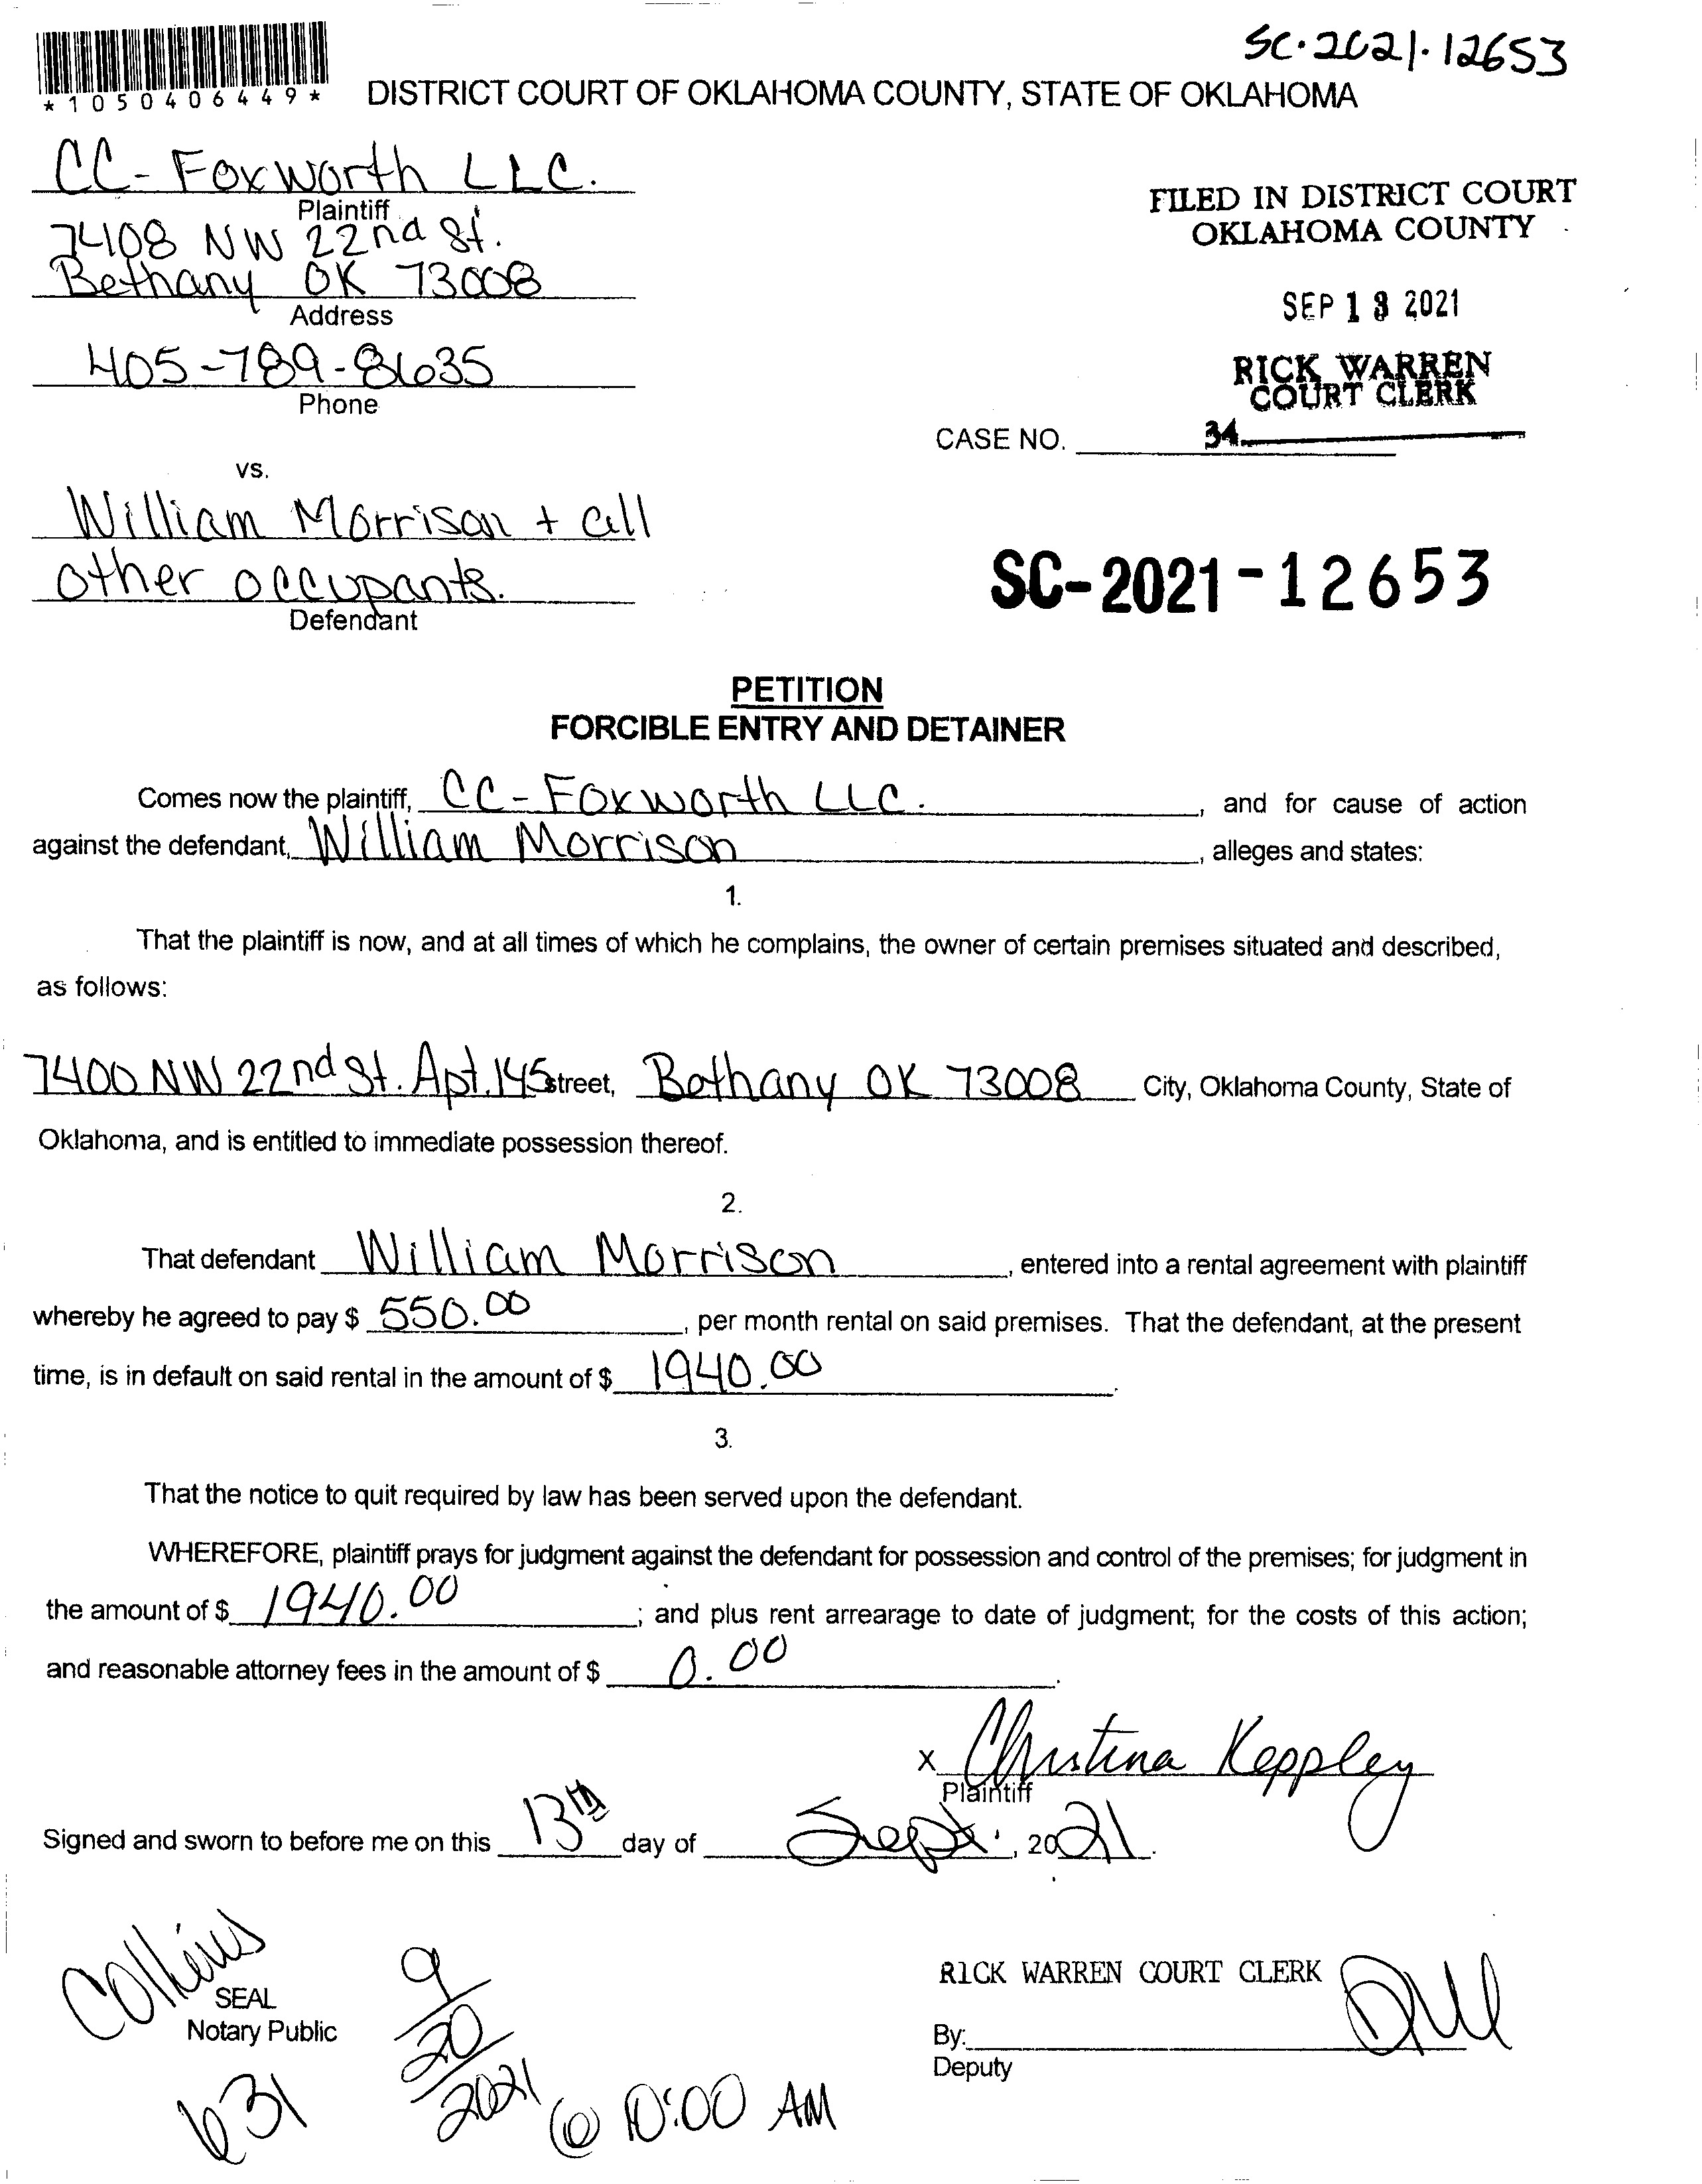 SC-2021-12653
*1050406449*
DISTRICT COURT OF OKLAHOMA COUNTY, STATE OF OKLAHOMA
CC-Foxworth LLC.
Plaintiff
7408 NW 22nd St.
Bethany OK 73008
Address
405-789-8635
Phone
FILED IN DISTRICT COURT
OKLAHOMA COUNTY
SEP 13 2021
RICK WARREN
COURT CLERK
34
CASE NO.
vs.
William Morrison + all
other occupants.
Defendant
SC-2021-12653
PETITION
FORCIBLE ENTRY AND DETAINER
Comes now the plaintiff, CC-Foxworth LLC. , and for cause of action
against the defendant, William Morrison , alleges and states:
1.
That the plaintiff is now, and at all times of which he complains, the owner of certain premises situated and described,
as follows:
7400 NW 22nd St. Apt. 145 street, Bethany OK 73008 City, Oklahoma County, State of
Oklahoma, and is entitled to immediate possession thereof.
2.
That defendant William Morrison , entered into a rental agreement with plaintiff
whereby he agreed to pay $ 550.00 , per month rental on said premises. That the defendant, at the present
time, is in default on said rental in the amount of $ 1940.00 .
3.
That the notice to quit required by law has been served upon the defendant.
WHEREFORE, plaintiff prays for judgment against the defendant for possession and control of the premises; for judgment in
the amount of $ 1940.00 ; and plus rent arrearage to date of judgment; for the costs of this action;
and reasonable attorney fees in the amount of $ 0.00 .
x Christina Keppley
Plaintiff
Signed and sworn to before me on this 13th day of Sept. , 2021.
Collins
SEAL
Notary Public
631
9/20/2021 @ 10:00 AM
RICK WARREN COURT CLERK
By:
Deputy